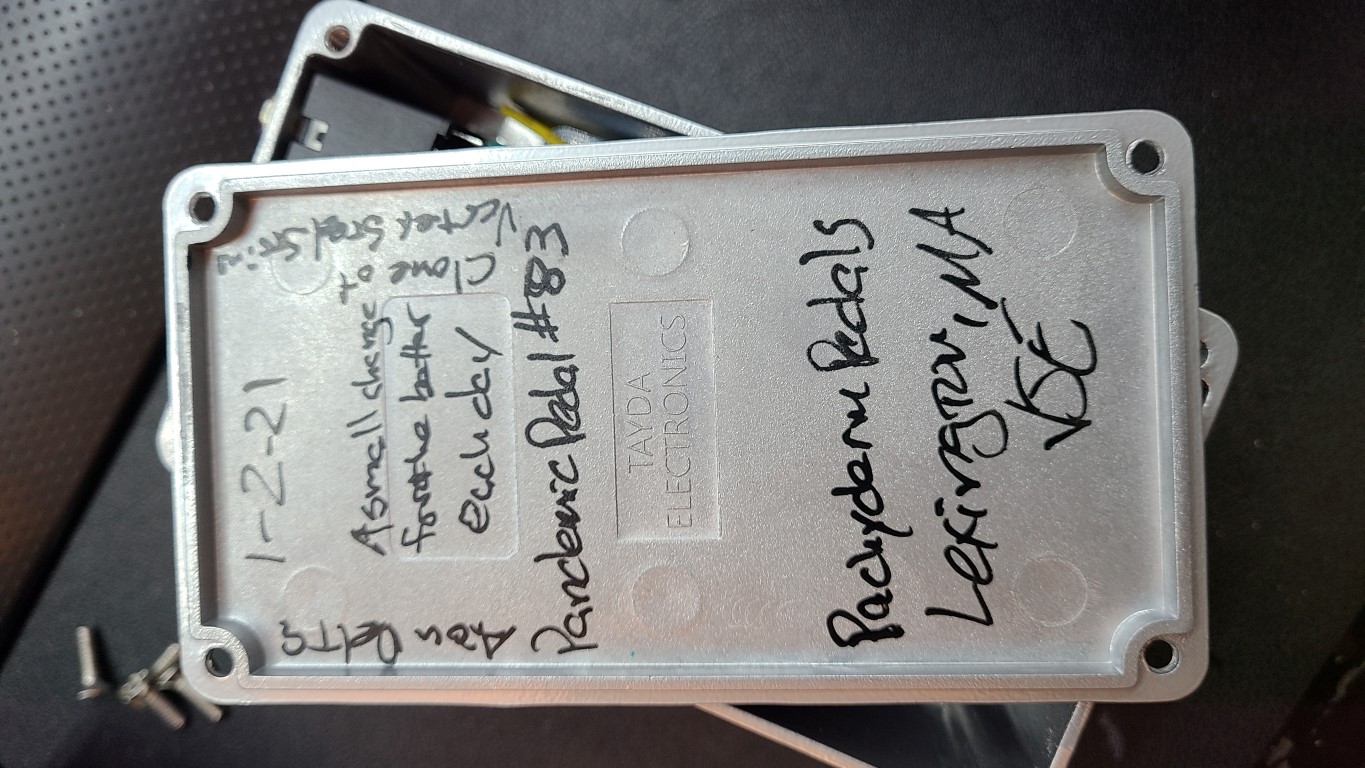 1-2-21
Aion Delta
A small change
for the better
each day
Clone of
Vertex Steel String
Pandemic Pedal #83
TAYDA
ELECTRONICS
Pachyderm Pedals
Lexington, MA